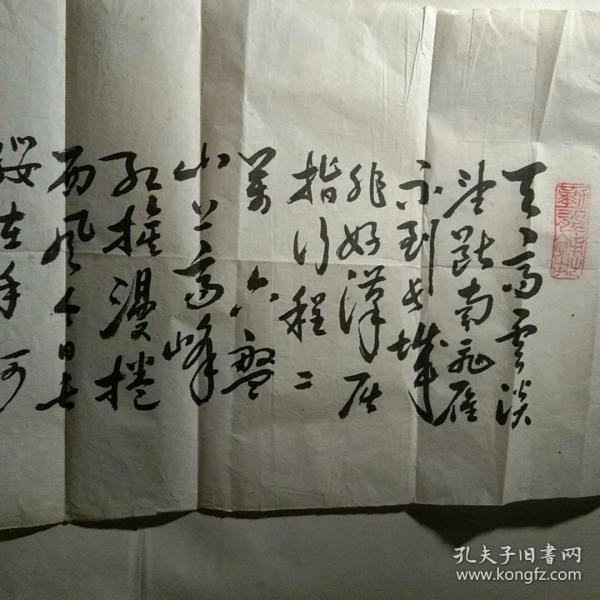 天高雲淡
望斷南飛雁
不到长城
非好漢屈
指行程二
萬 六盤
山上高峰
红旗漫捲
西风今日长
缨在手何
孔夫子旧书网
www.kongfz.com